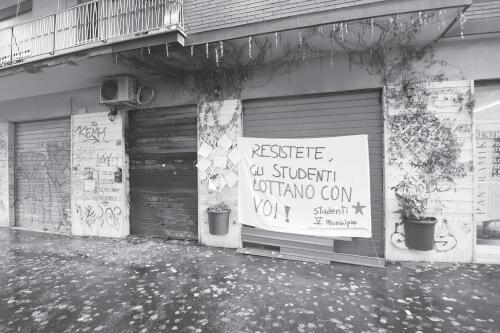 RESISTETE,
GLI STUDENTI
LOTTANO CON
VOI!
studenti
V MUNICIPIO